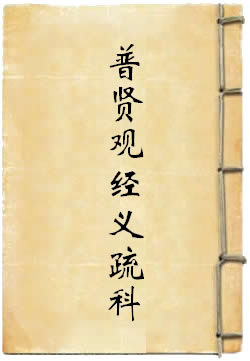 普贤观经义疏科